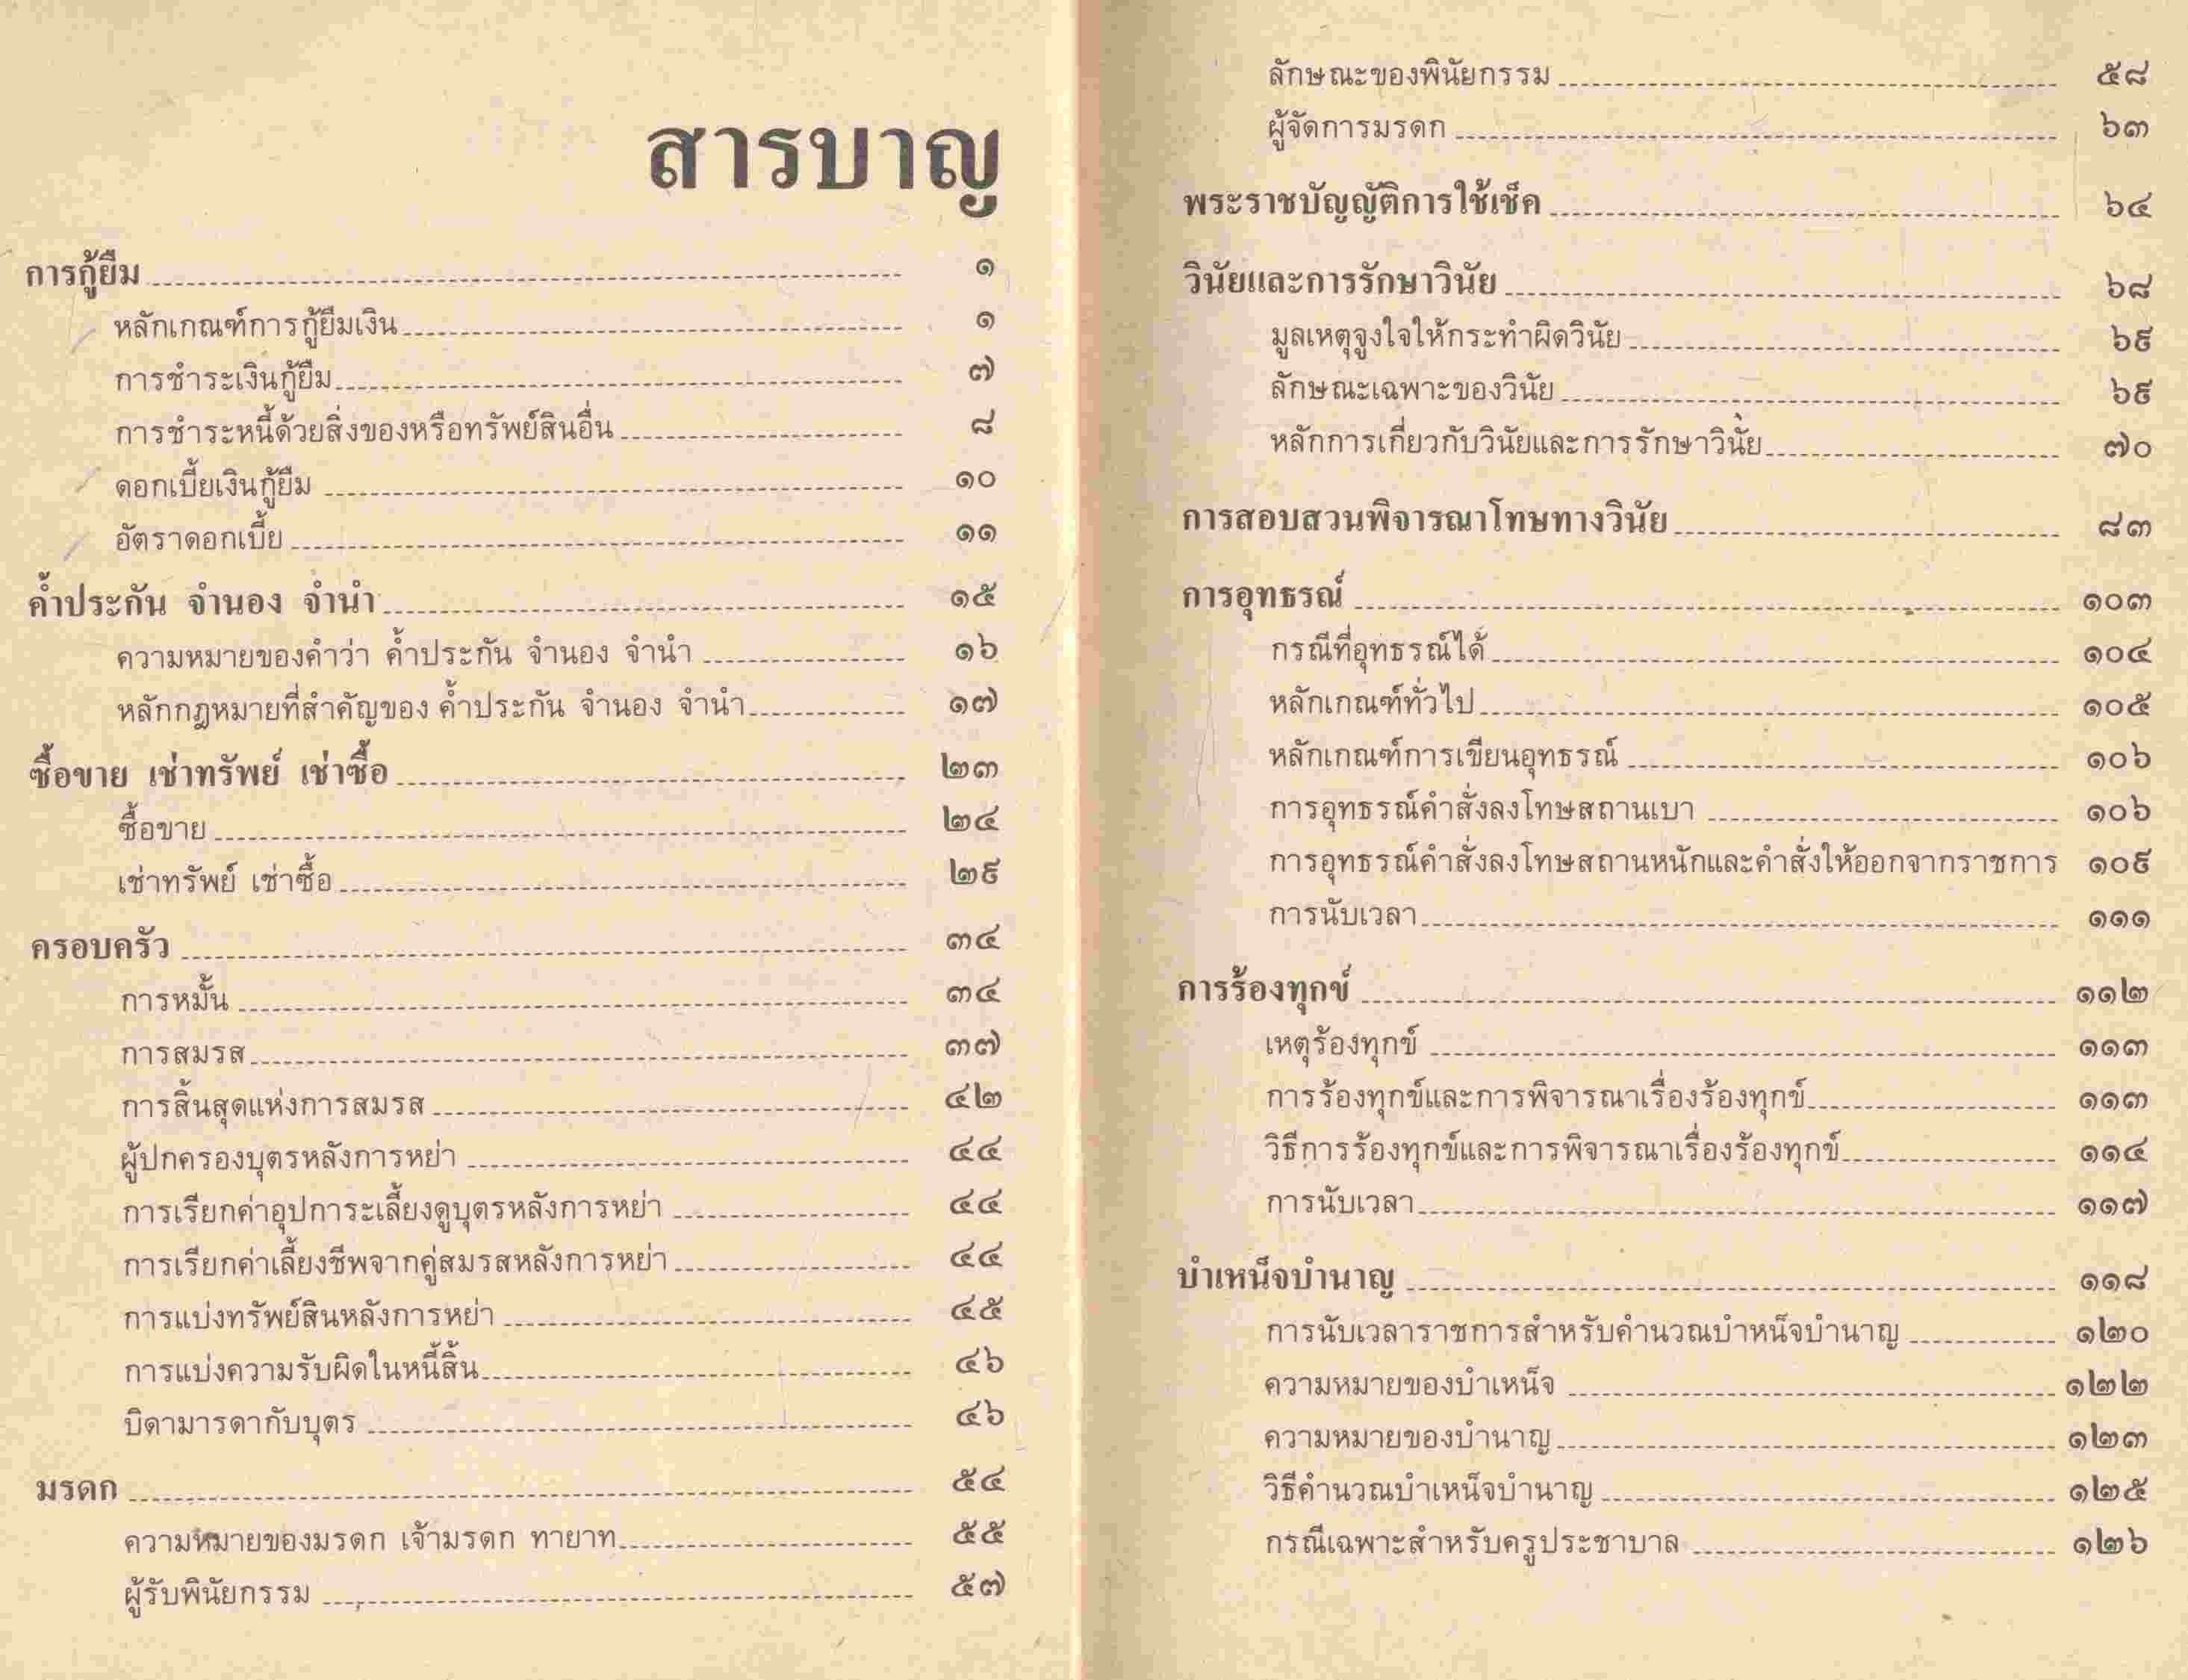 สารบาญ
การกู้ยืม ๑
หลักเกณฑ์การกู้ยืมเงิน ๑
การชำระเงินกู้ยืม ๗
การชำระหนี้ด้วยสิ่งของหรือทรัพย์สินอื่น ๘
ดอกเบี้ยเงินกู้ยืม ๑๐
อัตราดอกเบี้ย ๑๑
ค้ำประกัน จำนอง จำนำ ๑๕
ความหมายของคำว่า ค้ำประกัน จำนอง จำนำ ๑๖
หลักกฎหมายที่สำคัญของ ค้ำประกัน จำนอง จำนำ ๑๗
ซื้อขาย เช่าทรัพย์ เช่าซื้อ ๒๓
ซื้อขาย ๒๔
เช่าทรัพย์ เช่าซื้อ ๒๙
ครอบครัว ๓๔
การหมั้น ๓๔
การสมรส ๓๗
การสิ้นสุดแห่งการสมรส ๔๒
ผู้ปกครองบุตรหลังการหย่า ๔๔
การเรียกค่าอุปการะเลี้ยงดูบุตรหลังการหย่า ๔๔
การเรียกค่าเลี้ยงชีพจากคู่สมรสหลังการหย่า ๔๔
การแบ่งทรัพย์สินหลังการหย่า ๔๕
การแบ่งความรับผิดในหนี้สิ้น ๔๖
บิดามารดากับบุตร ๔๖
มรดก ๕๔
ความหมายของมรดก เจ้ามรดก ทายาท ๕๕
ผู้รับพินัยกรรม ๕๗
ลักษณะของพินัยกรรม ๕๘
ผู้จัดการมรดก ๖๓
พระราชบัญญัติการใช้เช็ค ๖๔
วินัยและการรักษาวินัย ๖๘
มูลเหตุจูงใจให้กระทำผิดวินัย ๖๙
ลักษณะเฉพาะของวินัย ๖๙
หลักการเกี่ยวกับวินัยและการรักษาวินัย ๗๐
การสอบสวนพิจารณาโทษทางวินัย ๘๓
การอุทธรณ์ ๑๐๓
กรณีที่อุทธรณ์ได้ ๑๐๔
หลักเกณฑ์ทั่วไป ๑๐๕
หลักเกณฑ์การเขียนอุทธรณ์ ๑๐๖
การอุทธรณ์คำสั่งลงโทษสถานเบา ๑๐๖
การอุทธรณ์คำสั่งลงโทษสถานหนักและคำสั่งให้ออกจากราชการ ๑๐๙
การนับเวลา ๑๑๑
การร้องทุกข์ ๑๑๒
เหตุร้องทุกข์ ๑๑๓
การร้องทุกข์และการพิจารณาเรื่องร้องทุกข์ ๑๑๓
วิธีการร้องทุกข์และการพิจารณาเรื่องร้องทุกข์ ๑๑๔
การนับเวลา ๑๑๗
บำเหน็จบำนาญ ๑๑๘
การนับเวลาราชการสำหรับคำนวณบำหน็จบำนาญ ๑๒๐
ความหมายของบำเหน็จ ๑๒๒
ความหมายของบำนาญ ๑๒๓
วิธีคำนวณบำเหน็จบำนาญ ๑๒๕
กรณีเฉพาะสำหรับครูประชาบาล ๑๒๖